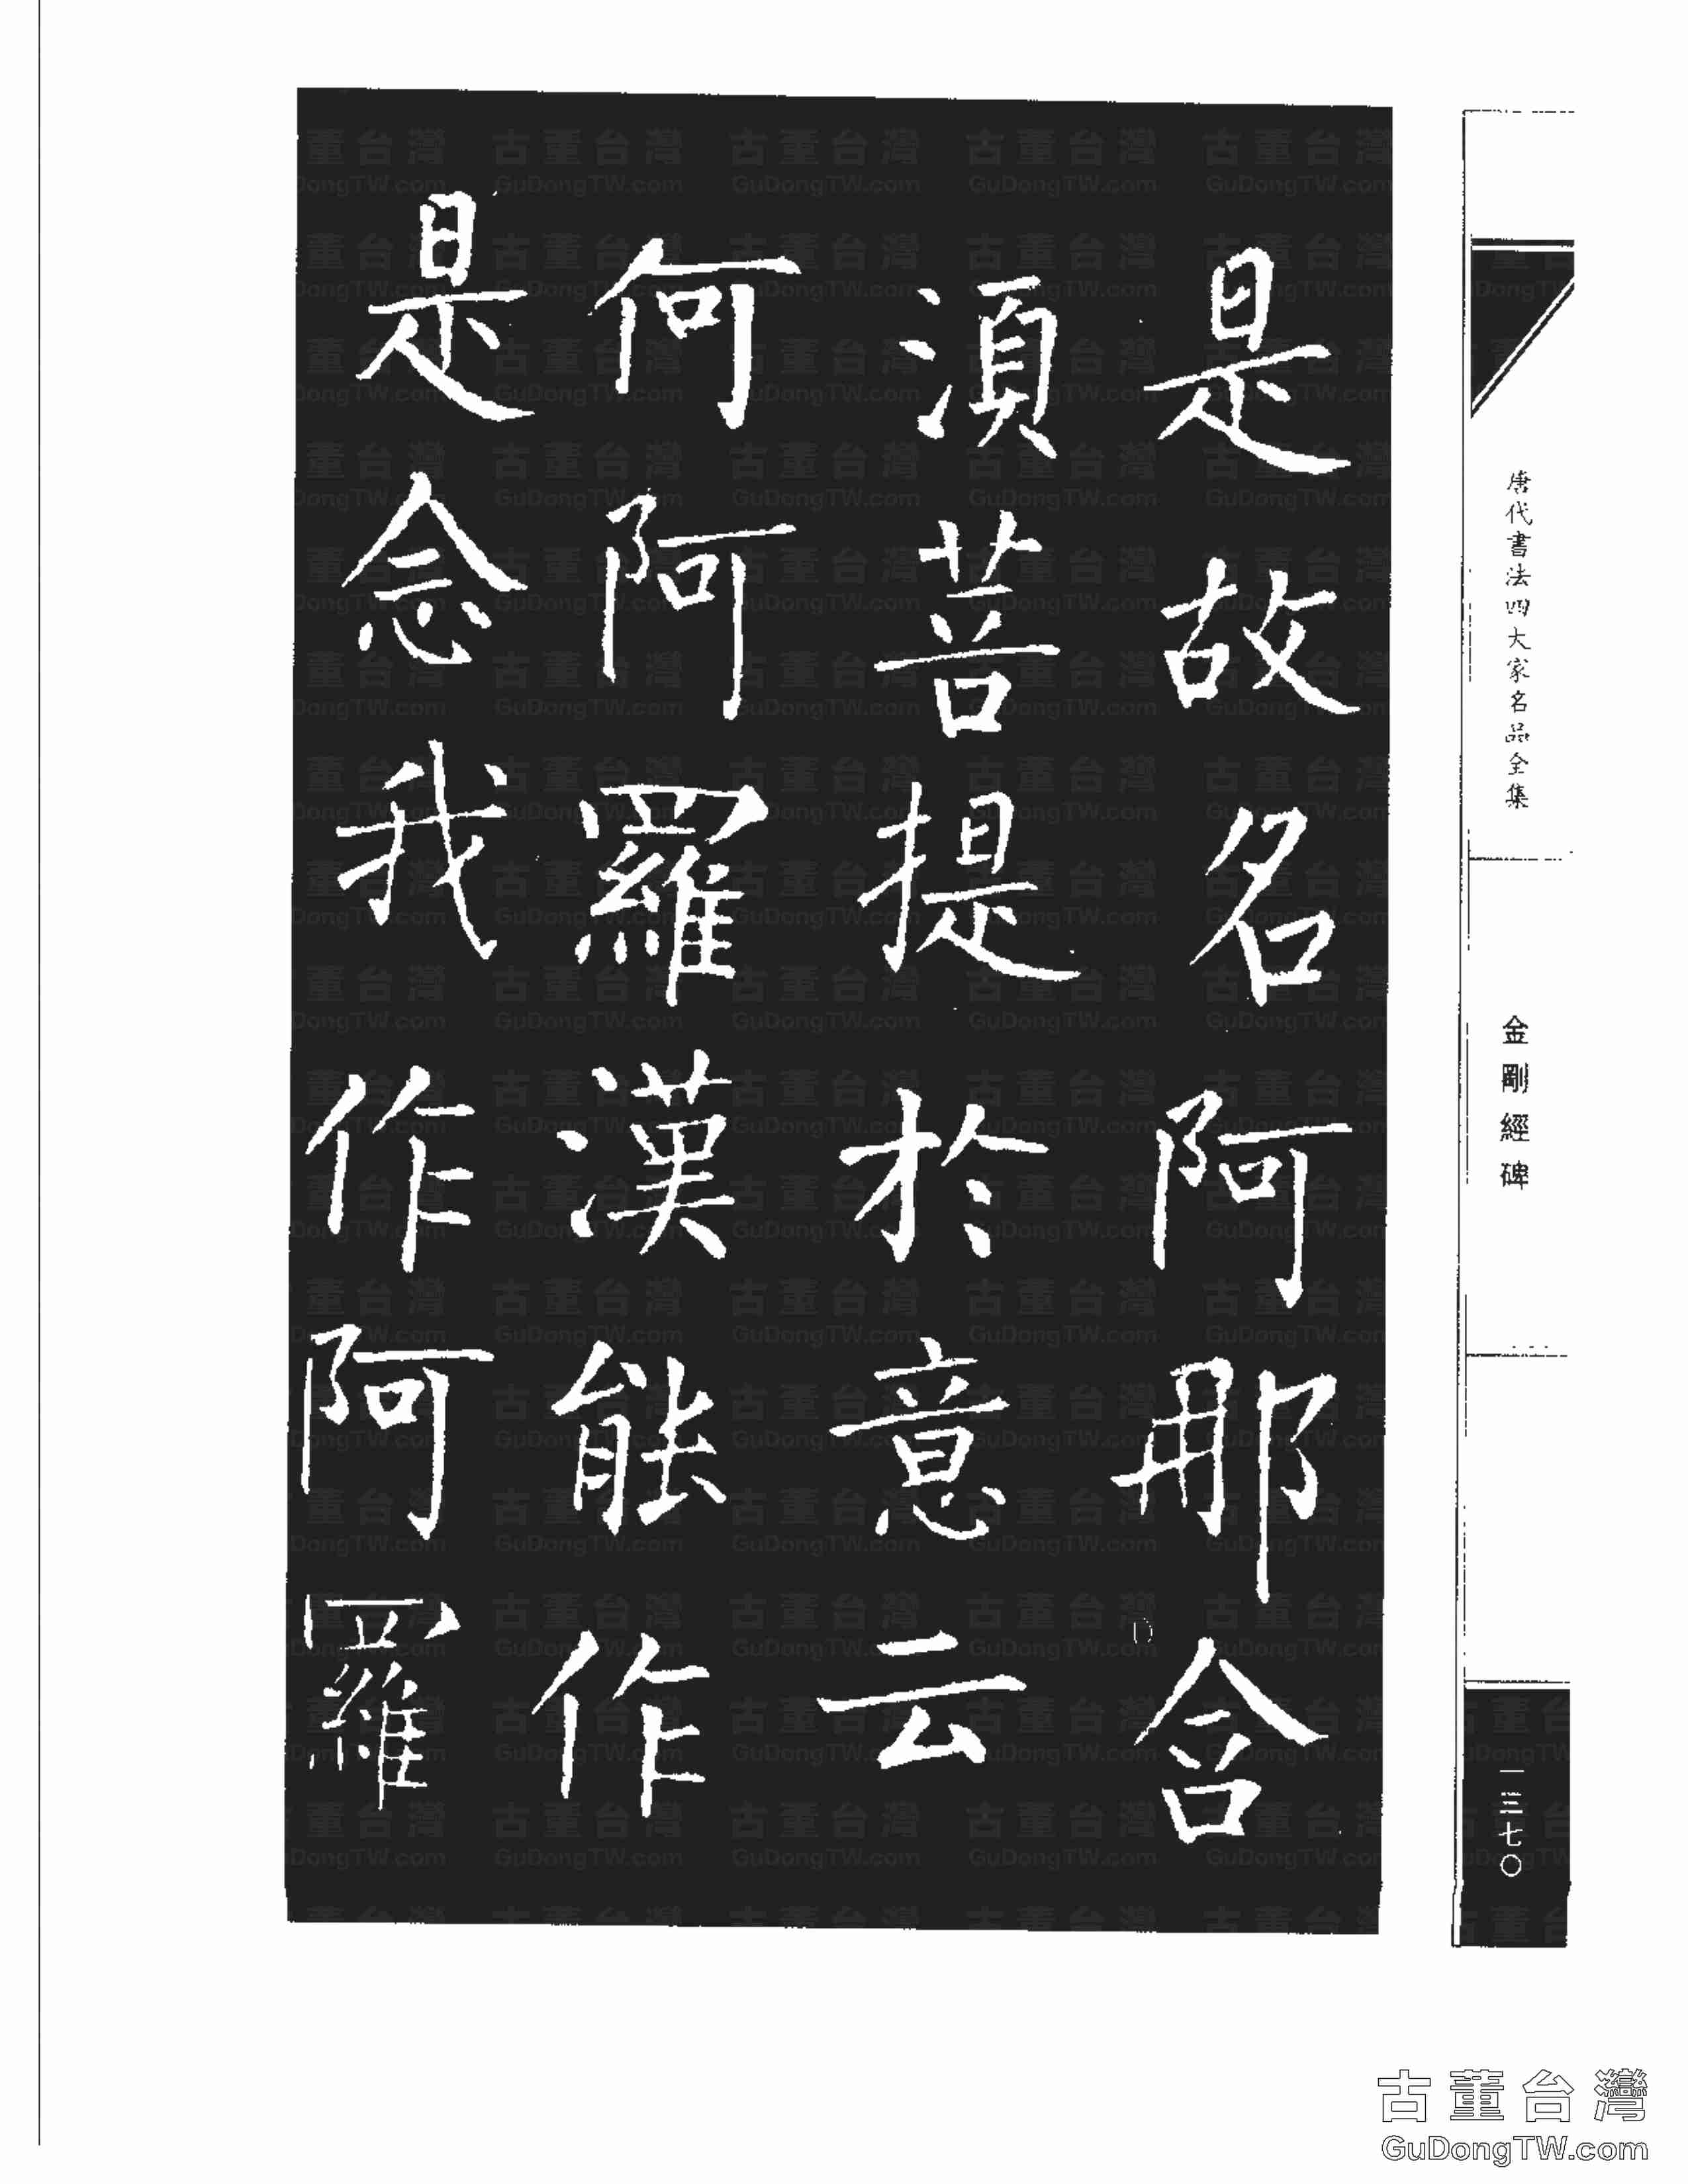 是故名阿那含
湏菩提於意云
何阿羅漢能作
是念我作阿羅
唐代書法四大家名品全集
金剛經碑
一三七〇
古董台灣
GuDongTW.com